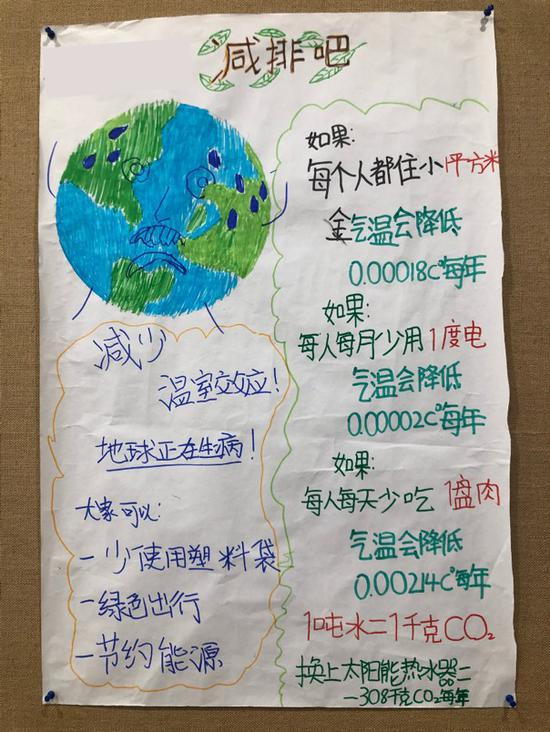 减排吧
减少
温室效应!
地球正在生病!
大家可以:
-少使用塑料袋
-绿色出行
-节约能源
如果:
每个人都住小1平方米
金气温会降低
0.00018C°每年
如果:
每人每月少用1度电
气温会降低
0.00002C°每年
如果:
每人每天少吃1盘肉
气温会降低
0.00214C°每年
1吨水=1千克CO₂
换上太阳能热水器=
-308千克CO₂每年